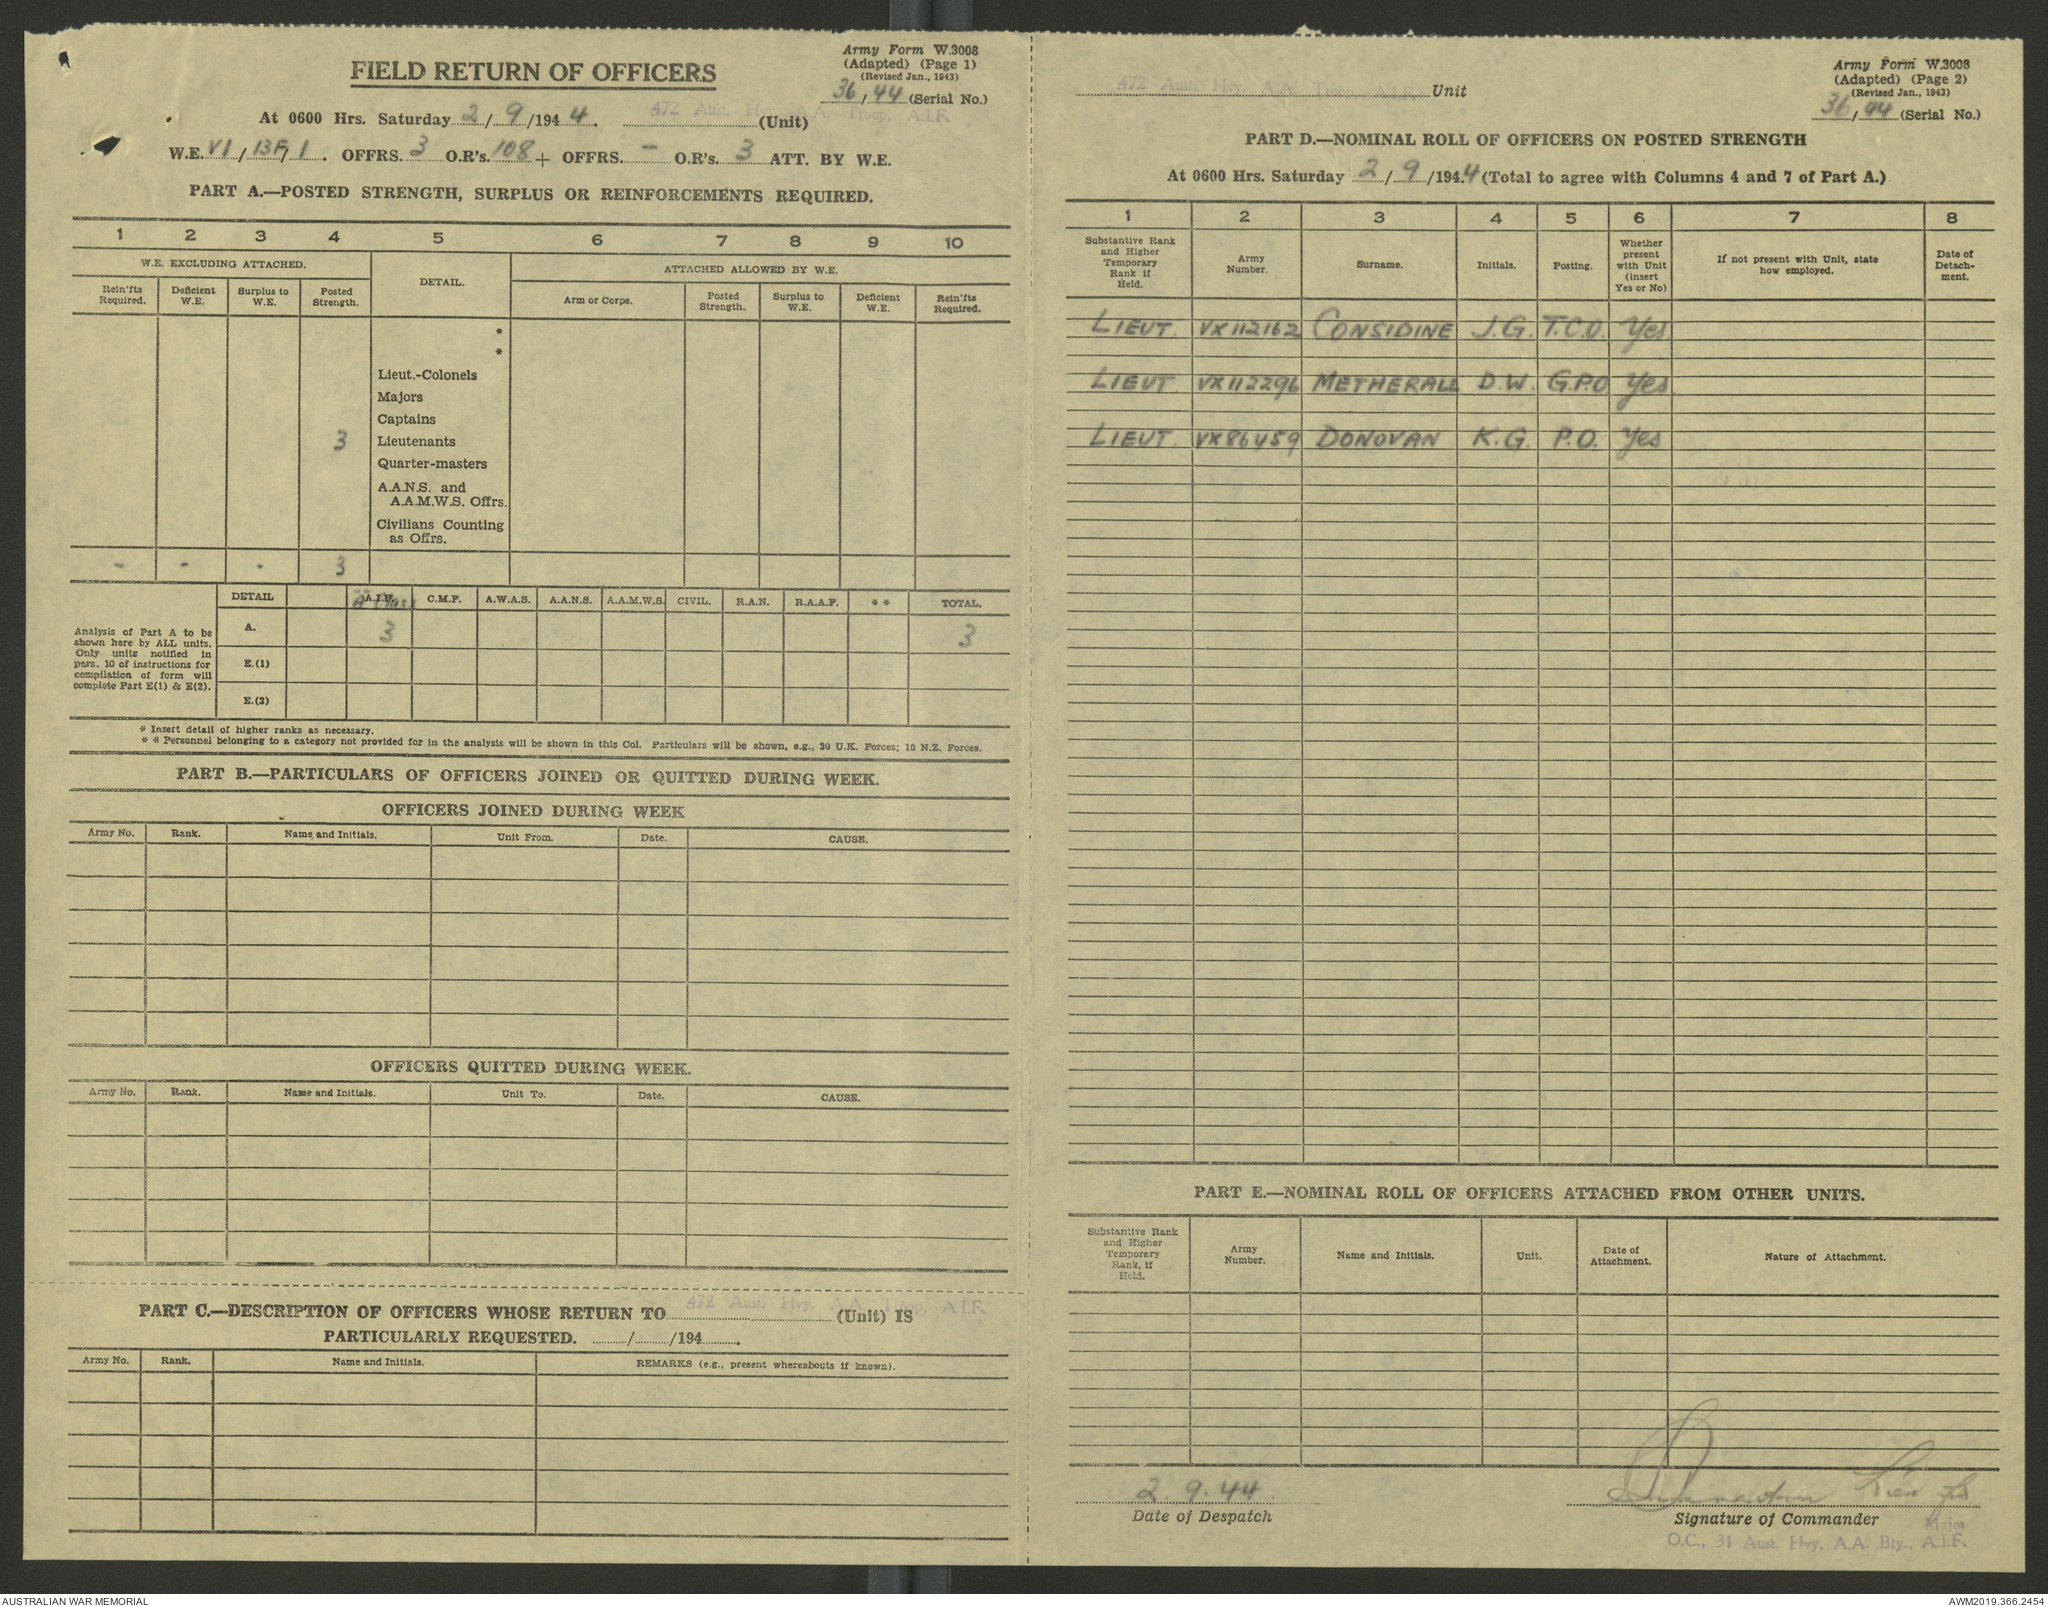 FIELD RETURN OF OFFICERS
Army Form W.3008
(Adapted) (Page 1)
(Revised Jan., 1943)
36/44 (Serial No.)
At 0600 Hrs. Saturday 2/9/1944. 472 Aust. Hvy. A.A. Troop, A.I.F. (Unit)
W.E. VI/13F/1. OFFRS. 3 O.R's. 108 + OFFRS. - O.R's. 3 ATT. BY W.E.
PART A.—POSTED STRENGTH, SURPLUS OR REINFORCEMENTS REQUIRED.
1 2 3 4 5 6 7 8 9 10
W.E. EXCLUDING ATTACHED. DETAIL. ATTACHED ALLOWED BY W.E.
Rein'fts Required. Deficient W.E. Surplus to W.E. Posted Strength. Arm or Corps. Posted Strength. Surplus to W.E. Deficient W.E. Rein'fts Required.
*
*
Lieut.-Colonels
Majors
Captains
3 Lieutenants
Quarter-masters
A.A.N.S. and
A.A.M.W.S. Offrs.
Civilians Counting
as Offrs.
- - - 3
DETAIL A.I.F. C.M.F. A.W.A.S. A.A.N.S. A.A.M.W.S. CIVIL. R.A.N. R.A.A.F. ** TOTAL.
Analysis of Part A to be
shown here by ALL units.
Only units notified in
para. 10 of instructions for
compilation of form will
complete Part E(1) & E(2).
A. 3 3
E.(1)
E.(2)
* Insert detail of higher ranks as necessary.
* * Personnel belonging to a category not provided for in the analysis will be shown in this Col. Particulars will be shown, e.g., 20 U.K. Forces; 10 N.Z. Forces.
PART B.—PARTICULARS OF OFFICERS JOINED OR QUITTED DURING WEEK.
OFFICERS JOINED DURING WEEK
Army No. Rank. Name and Initials. Unit From. Date. CAUSE.
OFFICERS QUITTED DURING WEEK.
Army No. Rank. Name and Initials. Unit To. Date. CAUSE.
PART C.—DESCRIPTION OF OFFICERS WHOSE RETURN TO 472 Aust. Hvy. A.A. Troop, A.I.F. (Unit) IS
PARTICULARLY REQUESTED. ____/____/194____.
Army No. Rank. Name and Initials. REMARKS (e.g., present whereabouts if known).
472 Aust. Hvy. A.A. Troop, A.I.F. Unit
Army Form W.3008
(Adapted) (Page 2)
(Revised Jan., 1943)
36/44 (Serial No.)
PART D.—NOMINAL ROLL OF OFFICERS ON POSTED STRENGTH
At 0600 Hrs. Saturday 2/9/1944 (Total to agree with Columns 4 and 7 of Part A.)
1 2 3 4 5 6 7 8
Substantive Rank and Higher Temporary Rank if Held. Army Number. Surname. Initials. Posting. Whether present with Unit (insert Yes or No) If not present with Unit, state how employed. Date of Detachment.
LIEUT. VX112162 CONSIDINE J.G. T.C.O. Yes
LIEUT. VX112296 METHERALL D.W. G.P.O. Yes
LIEUT. VX86459 DONOVAN K.G. P.O. Yes
PART E.—NOMINAL ROLL OF OFFICERS ATTACHED FROM OTHER UNITS.
Substantive Rank and Higher Temporary Rank, if Held. Army Number. Name and Initials. Unit. Date of Attachment. Nature of Attachment.
2.9.44
Date of Despatch
Signature of Commander
Major
O.C., 31 Aust. Hvy. A.A. Bty., A.I.F.
AUSTRALIAN WAR MEMORIAL
AWM2019.366.2454